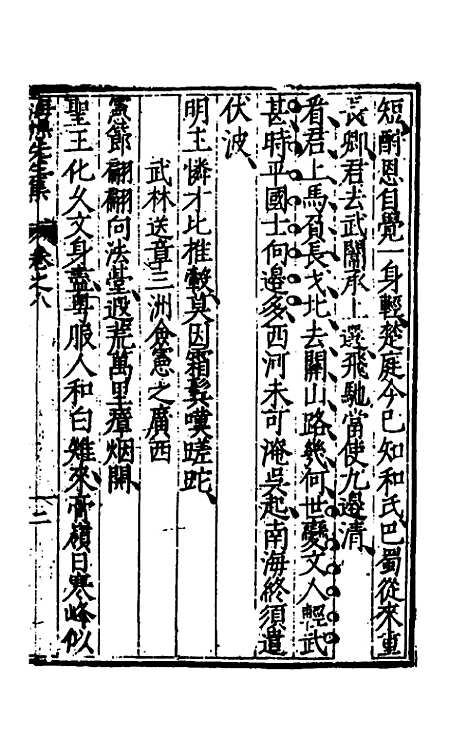 短酬恩自覺一身輕楚庭今已知和氏巴蜀從來重
長卿君去武關承上選飛馳當使九邊清
看君上馬負長戈北去關山路幾何世變文人輕武
甚時平國士向邊多西河未可淹吳起南海終須遣
伏波
明王憐才比推轂莫因霜鬂嘆蹉跎
武林送章三洲僉憲之廣西
憲節翩翩向法堂遐荒萬里瘴烟開
聖王化久文身盡粤服人和白雉來脊嶺日寒峰似
先生集
卷之八
二